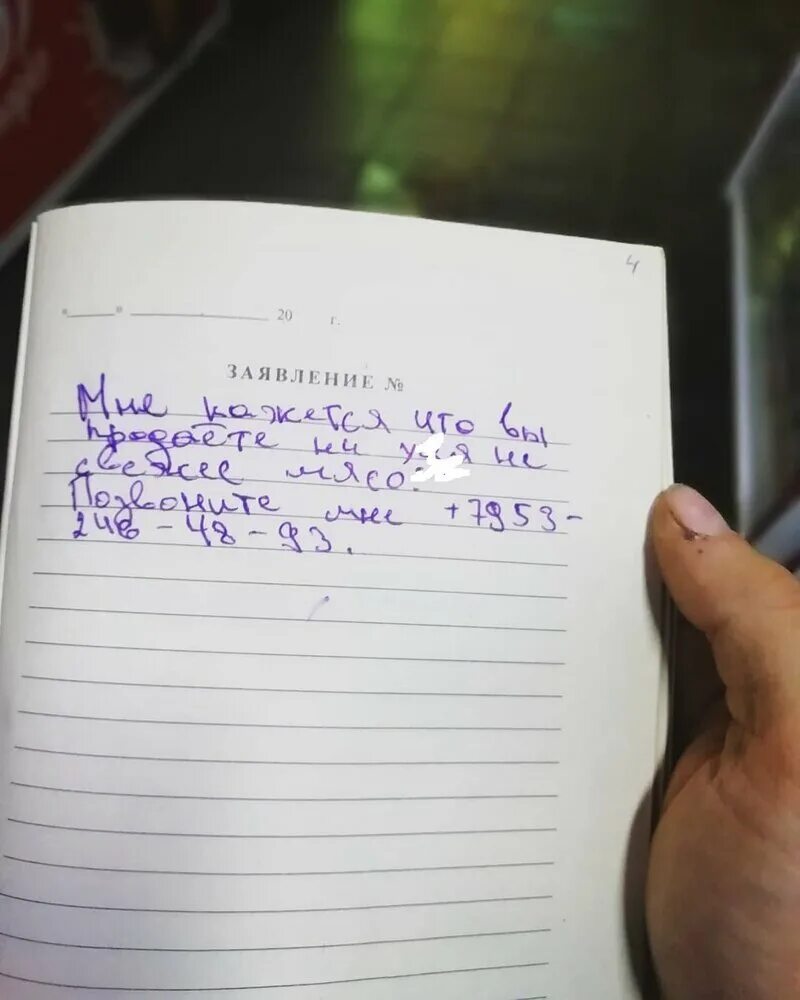 4
"____" ____________ 20 г.
ЗАЯВЛЕНИЕ №
Мне кажется что вы
продаёте ни не
свежее мясо.
Позвоните мне +7953-
246-48-93.